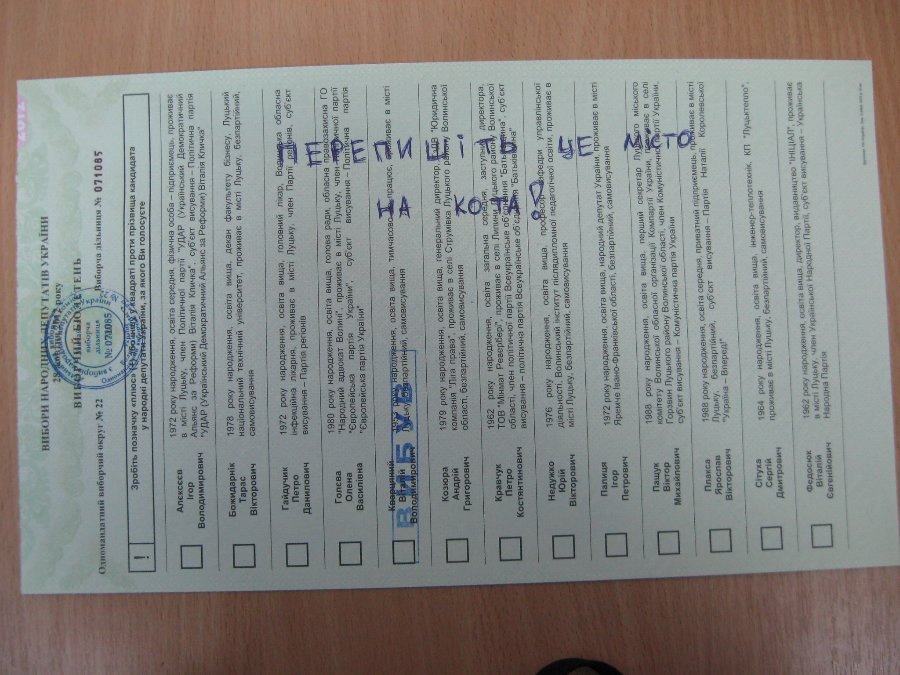 ВИБОРИ НАРОДНИХ ДЕПУТАТІВ УКРАЇНИ
ВИБОРЧИЙ БЮЛЕТЕНЬ
Одномандатний виборчий округ № 22 Виборча дільниця № 071085
!
у народні депутати України, за якого Ви голосуєте
Алєксєєв
Ігор
Володимирович
1972 року народження, освіта середня, фізична особа – підприємець, проживає
в місті Луцьку, член Політичної партії "УДАР (Український Демократичний
Альянс за Реформи) Віталія Кличка", суб'єкт висування – Політична партія
"УДАР (Український Демократичний Альянс за Реформи) Віталія Кличка"
Божидарнік
Тарас
Вікторович
1978 року народження, освіта вища, декан факультету бізнесу, Луцький
національний технічний університет, проживає в місті Луцьку, безпартійний,
самовисування
Гайдучик
Петро
Данилович
1972 року народження, освіта вища, головний лікар, Волинська обласна
інфекційна лікарня, проживає в місті Луцьку, член Партії регіонів, суб'єкт
висування – Партія регіонів
Голєва
Олена
Василівна
1980 року народження, освіта вища, голова ради, обласна правозахисна ГО
"Народний адвокат Волині", проживає в місті Луцьку, член політичної партії
"Європейська партія України", суб'єкт висування – Політична партія
"Європейська партія України"
Віталій
Володимирович
ВИБУВ
Козюра
Андрій
Григорович
1979 року народження, освіта вища, генеральний директор, ТзОВ "Юридична
компанія "Ліга права", проживає в селі Струмівка Луцького району Волинської
області, безпартійний, самовисування
Кравчук
Петро
Костянтинович
1962 року народження, освіта загальна середня, заступник директора,
області, член політичної партії Всеукраїнське об'єднання "Батьківщина", суб'єкт
висування – політична партія Всеукраїнське об'єднання "Батьківщина"
Недужко
Юрій
Вікторович
1976 року народження, освіта вища, професор кафедри управлінської
діяльності, Волинський інститут післядипломної педагогічної освіти, проживає в
місті Луцьку, безпартійний, самовисування
Палиця
Ігор
Петрович
1972 року народження, освіта вища, народний депутат України, проживає в місті
Яремче Івано-Франківської області, безпартійний, самовисування
Пащук
Віктор
Михайлович
суб'єкт висування – Комуністична партія України
Плакса
Ярослав
Вікторович
1988 року народження, освіта середня, приватний підприємець, проживає в місті
Луцьку, безпартійний, суб'єкт висування – Партія Наталії Королевської
"Україна – Вперед!"
Сітуха
Сергій
Дмитрович
1964 року народження, освіта вища, інженер-теплотехнік, КП "Луцьктепло",
проживає в місті Луцьку, безпартійний, самовисування
Федосюк
Віталій
Євгенійович
1962 року народження, освіта вища, директор, видавництво "ІНІЦІАЛ", проживає
в місті Луцьку, член Української Народної Партії, суб'єкт висування – Українська
Народна Партія
ПЕРЕПИШІТЬ ЦЕ МІСТО
НА КОТА?